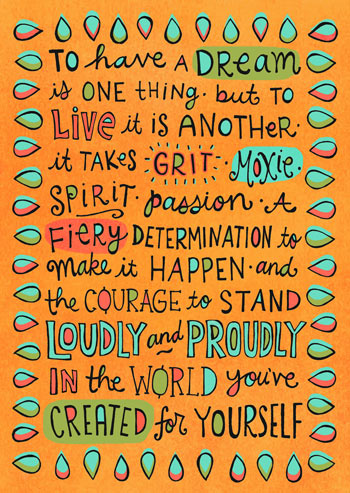 TO have A DREAM
is ONE tHiNg· but TO
Live it iS ANOTHER·
it TAKES GRIT· MOXiE·
SPiRiT· passion· A
FiERy DETERMINATION to
make it HAPPEN· and
the COURAGE to STAND
LOUDLY and PROUDLY
IN the WORLD you've
CREATED for YOURSELF